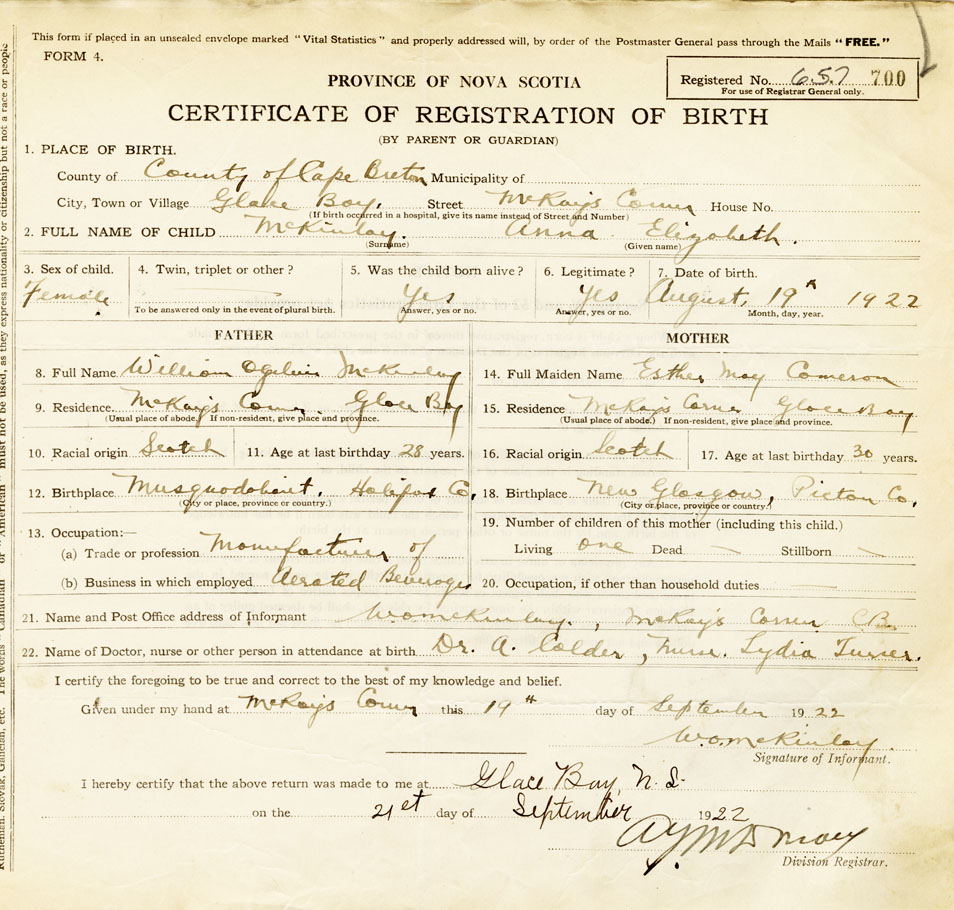 This form if placed in an unsealed envelope marked "Vital Statistics" and properly addressed will, by order of the Postmaster General pass through the Mails "FREE."
FORM 4.
Registered No. 657 700
For use of Registrar General only.
PROVINCE OF NOVA SCOTIA
CERTIFICATE OF REGISTRATION OF BIRTH
(BY PARENT OR GUARDIAN)
1. PLACE OF BIRTH.
County of County of Cape Breton Municipality of
City, Town or Village Glace Bay. Street McKays Corner House No.
(If birth occurred in a hospital, give its name instead of Street and Number)
2. FULL NAME OF CHILD McKinlay. Anna Elizabeth.
(Surname) (Given name)
3. Sex of child. 4. Twin, triplet or other? 5. Was the child born alive? 6. Legitimate? 7. Date of birth.
Female — Yes Yes August, 19th 1922
To be answered only in the event of plural birth. Answer, yes or no. Answer, yes or no. Month, day, year.
FATHER MOTHER
8. Full Name William Ogilvie McKinlay 14. Full Maiden Name Esther May Cameron
9. Residence McKay's Corner Glace Bay 15. Residence McKays Corner Glace Bay
(Usual place of abode.) If non-resident, give place and province. (Usual place of abode.) If non-resident, give place and province.
10. Racial origin Scotch 11. Age at last birthday 28 years. 16. Racial origin Scotch 17. Age at last birthday 30 years.
12. Birthplace Musquodoboit, Halifax Co, 18. Birthplace New Glasgow, Pictou Co,
(City or place, province or country.) (City or place, province or country.)
13. Occupation:— 19. Number of children of this mother (including this child.)
(a) Trade or profession Manufacturer of Living one Dead — Stillborn —
(b) Business in which employed Aerated Beverages 20. Occupation, if other than household duties
21. Name and Post Office address of Informant W.O. McKinlay, McKay's Corner C.B.
22. Name of Doctor, nurse or other person in attendance at birth Dr. A. Calder, Nurse. Lydia Turner.
I certify the foregoing to be true and correct to the best of my knowledge and belief.
Given under my hand at McKay's Corner this 19th day of September 1922
W.O. McKinlay.
Signature of Informant.
I hereby certify that the above return was made to me at Glace Bay, N.S.
on the 21st day of September 1922
Division Registrar.